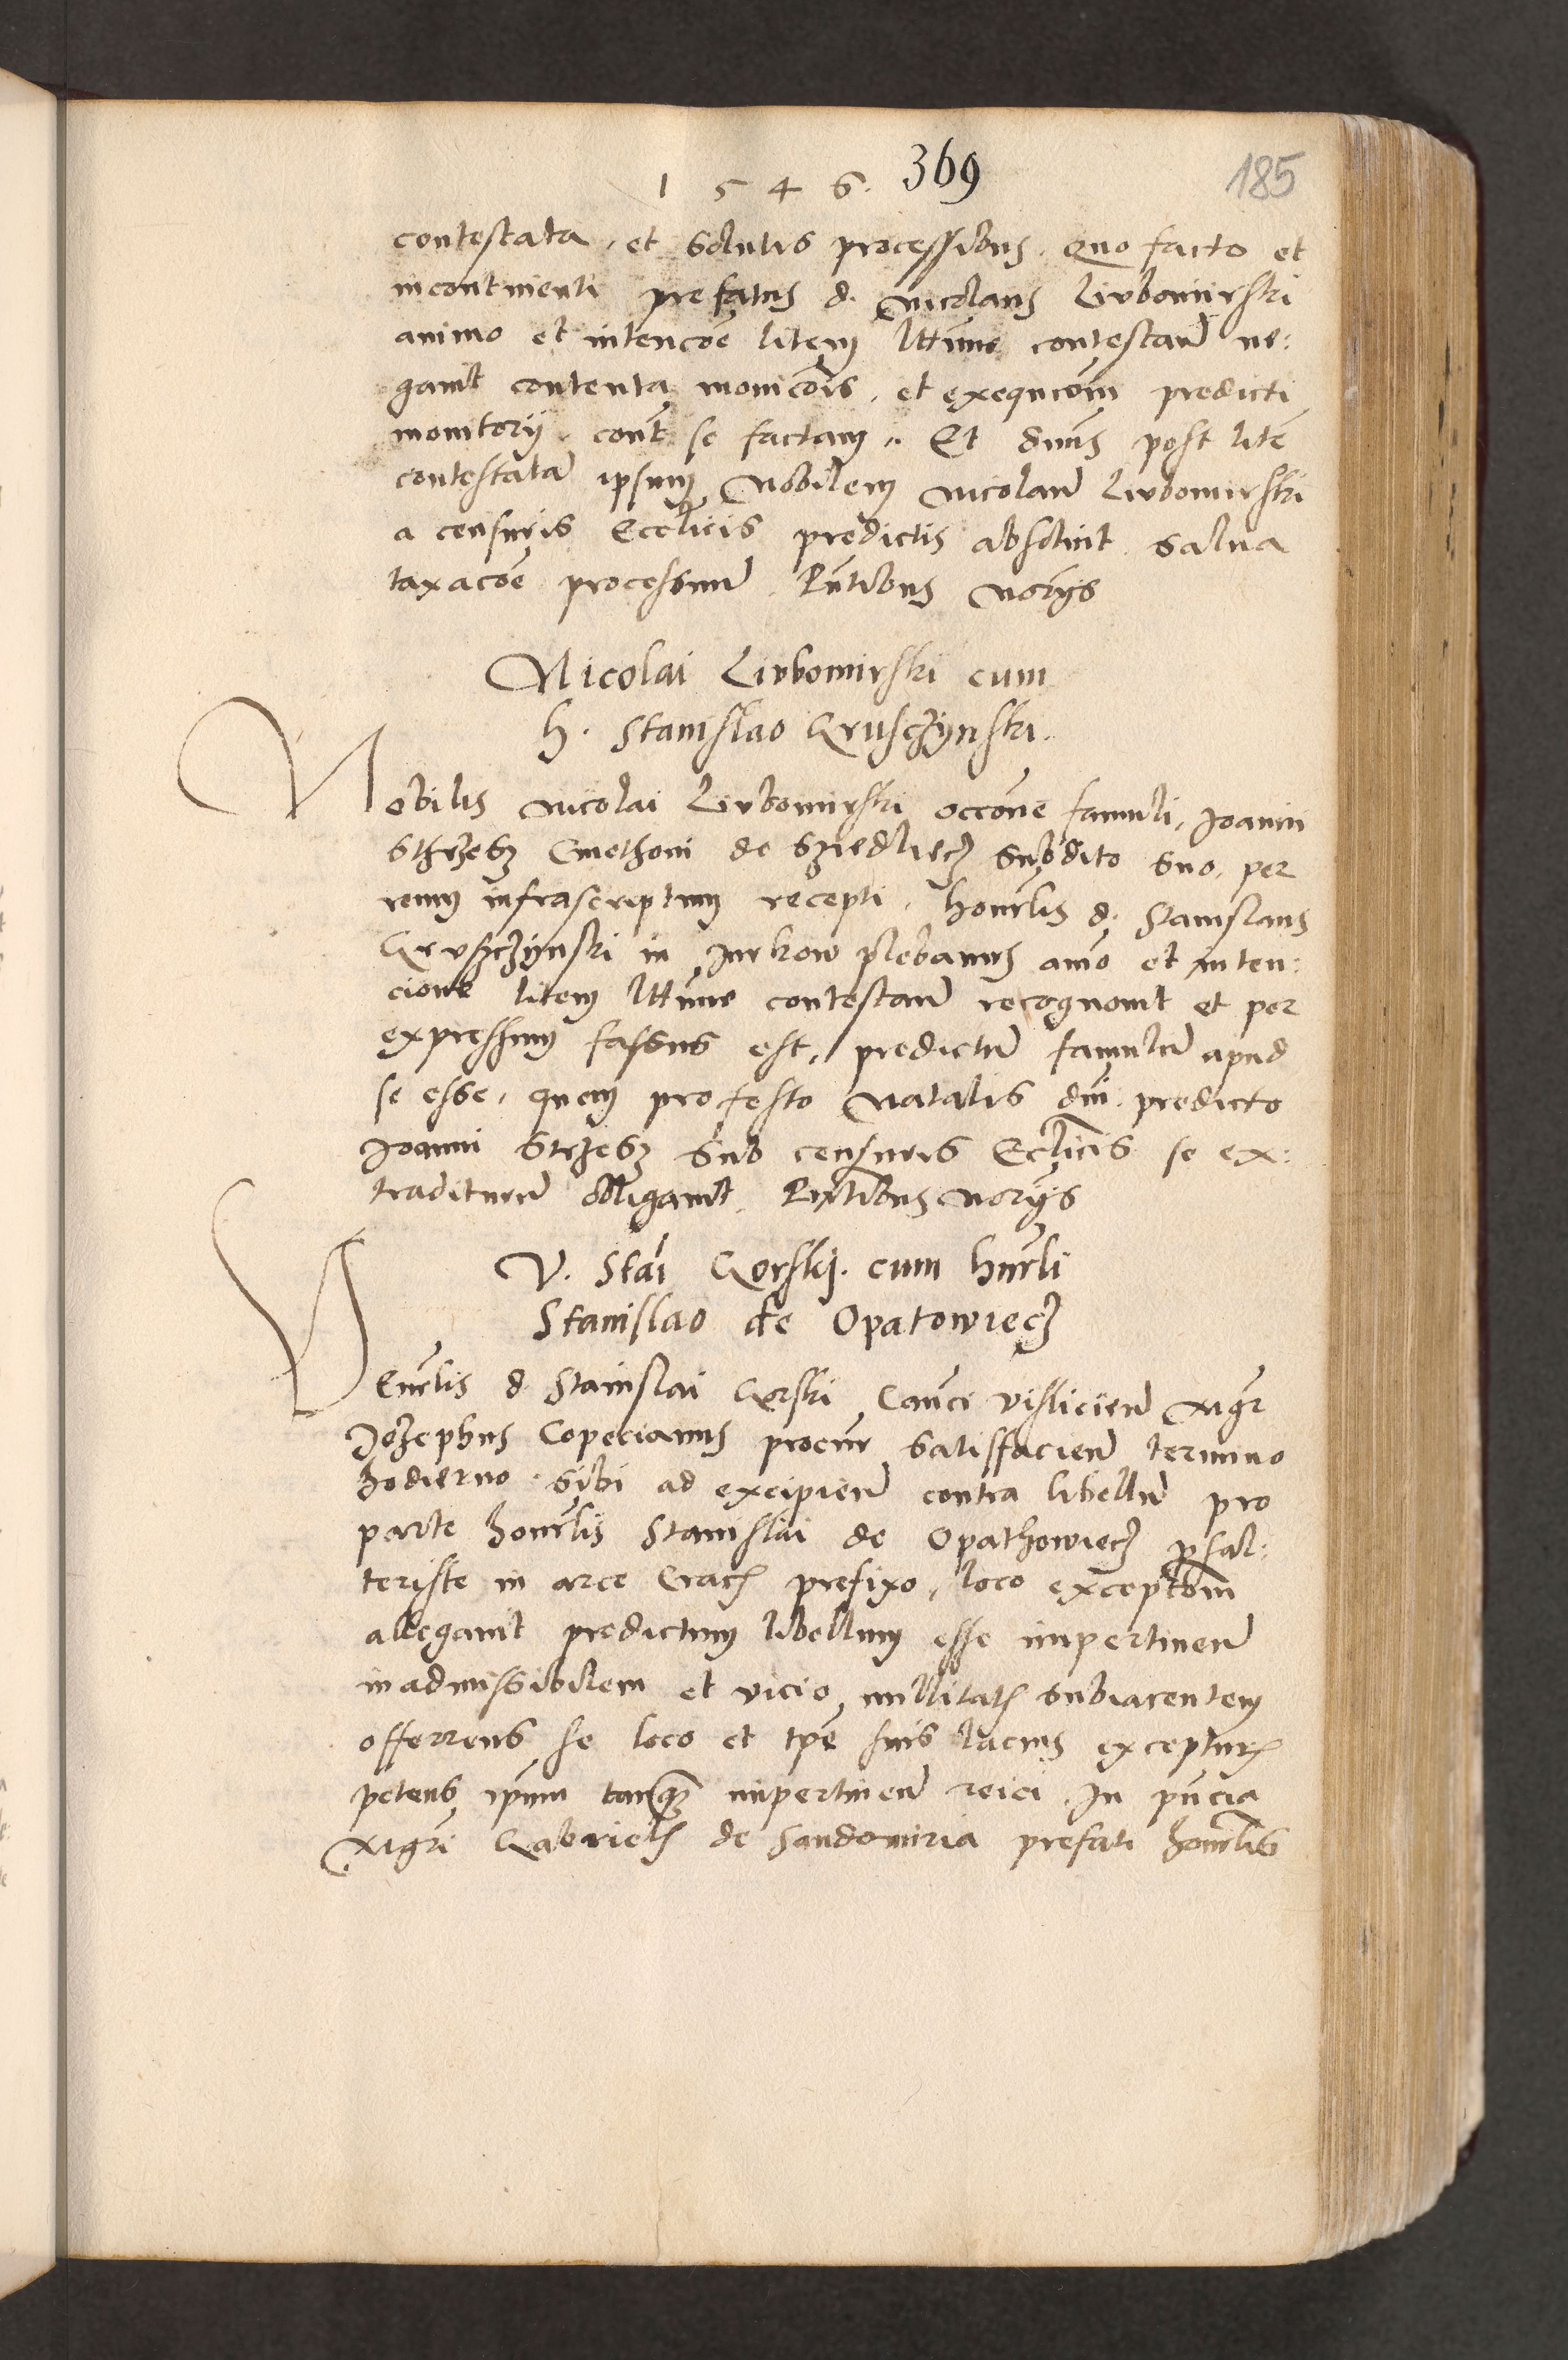 1546. 369 185
contestata, et solutis processibus. Quo facto et
incontinenti prefatus d. Nicolaus Liubomirski
animo et intencoe litem lttime contestan ne:
gavit contenta monicois, et exequcoem predicti
monitorij cont se factam. Et dnus post lite
contestata ipsum Nobilem Nicolau Liubomirski
a censuris Ecclicis predictis absoluit salua
taxacoe processuum Pntibus Norijs
Nicolai Liubomirski cum
h. Stanislao Gruschzijnski.
Nobilis Nicolai Liubomirski occone famuli, Joanni
Sthrzesz Cmethoni de Sziedliecz subdito suo, per
reum infrascriptum recepti, honrlis d. Stanislaus
Gruszczijnski in Jurkow plebanus aimo et inten:
cione litem lttime contestan recognouit et per
expressum fassus est, predictu famulu apud
se esse, quem pro festo Natalis dni predicto
Joanni Strzesz sub censuris Ecclicis se ex:
traditurum obligauit. Pntibus Norijs
V. Stai Gorskj. cum hnrli
Stanislao de Opatowiecz
Venrlis d. Stanislai Gorski Canci Vislicien Mgr
Jozephus Copecianus procur satisfacien termino
hodierno sibi ad excipien contra libellu pro
parte honrlis Stanislai de Opathowiecz psal:
teriste in arce Crac prefixo, loco exceptom
allegauit predictum libellum esse impertinen
inadmissibilem et vicio nullitatis subiacentem
offerrens se loco et tpe suis lacius exceptur
petens ipum tanq impertinen reici. In pncia
Mgri Gabrielis de Sandomiria prefati honrlis